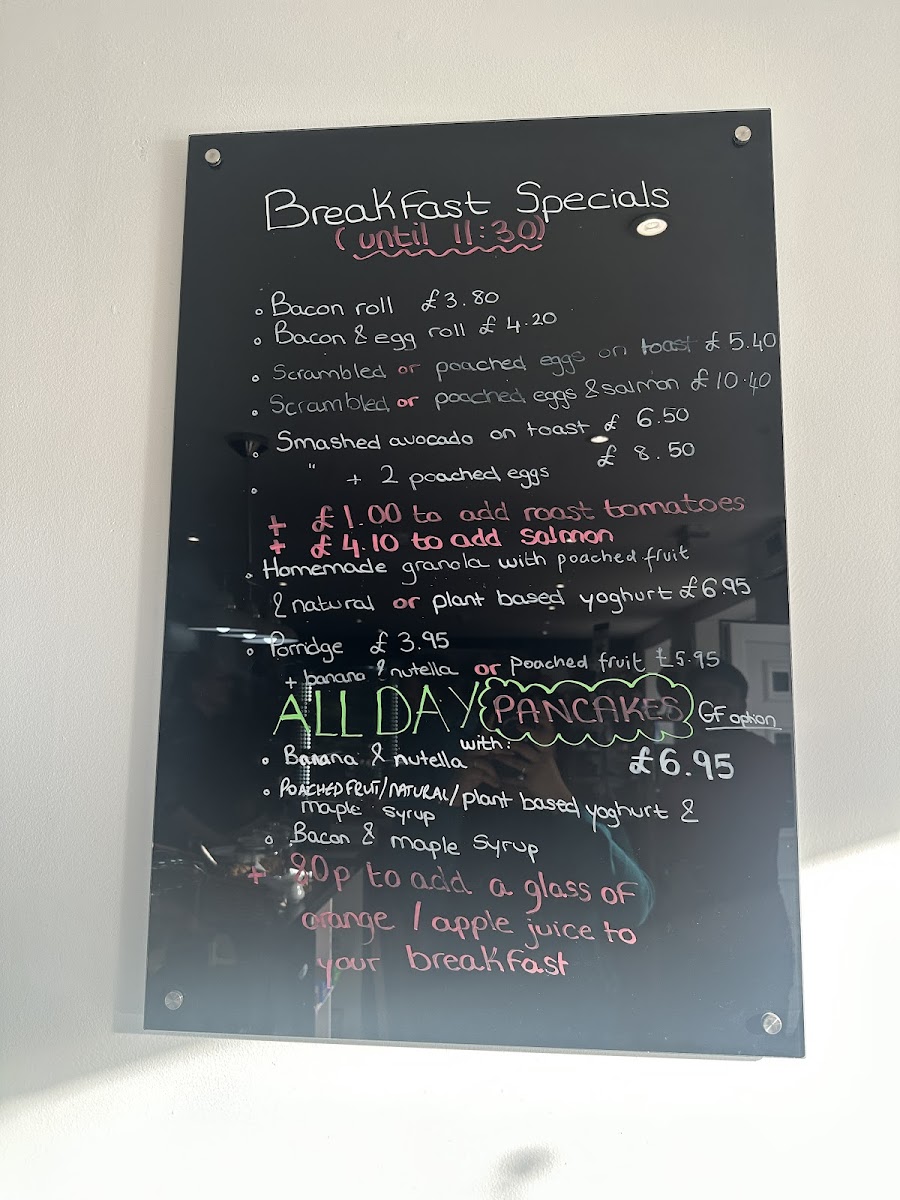 Breakfast Specials
(until 11:30)
• Bacon roll £3.80
• Bacon & egg roll £4.20
• Scrambled or poached eggs on toast £5.40
• Scrambled or poached eggs & salmon £10.40
• Smashed avocado on toast £6.50
• " + 2 poached eggs £8.50
+ £1.00 to add roast tomatoes
+ £4.10 to add salmon
• Homemade granola with poached fruit
& natural or plant based yoghurt £6.95
• Porridge £3.95
+ banana & nutella or poached fruit £5.95
ALL DAY PANCAKES GF option
with:
• Banana & nutella £6.95
• POACHED FRUIT/NATURAL/plant based yoghurt &
maple syrup
• Bacon & maple syrup
+ 80p to add a glass of
orange / apple juice to
your breakfast